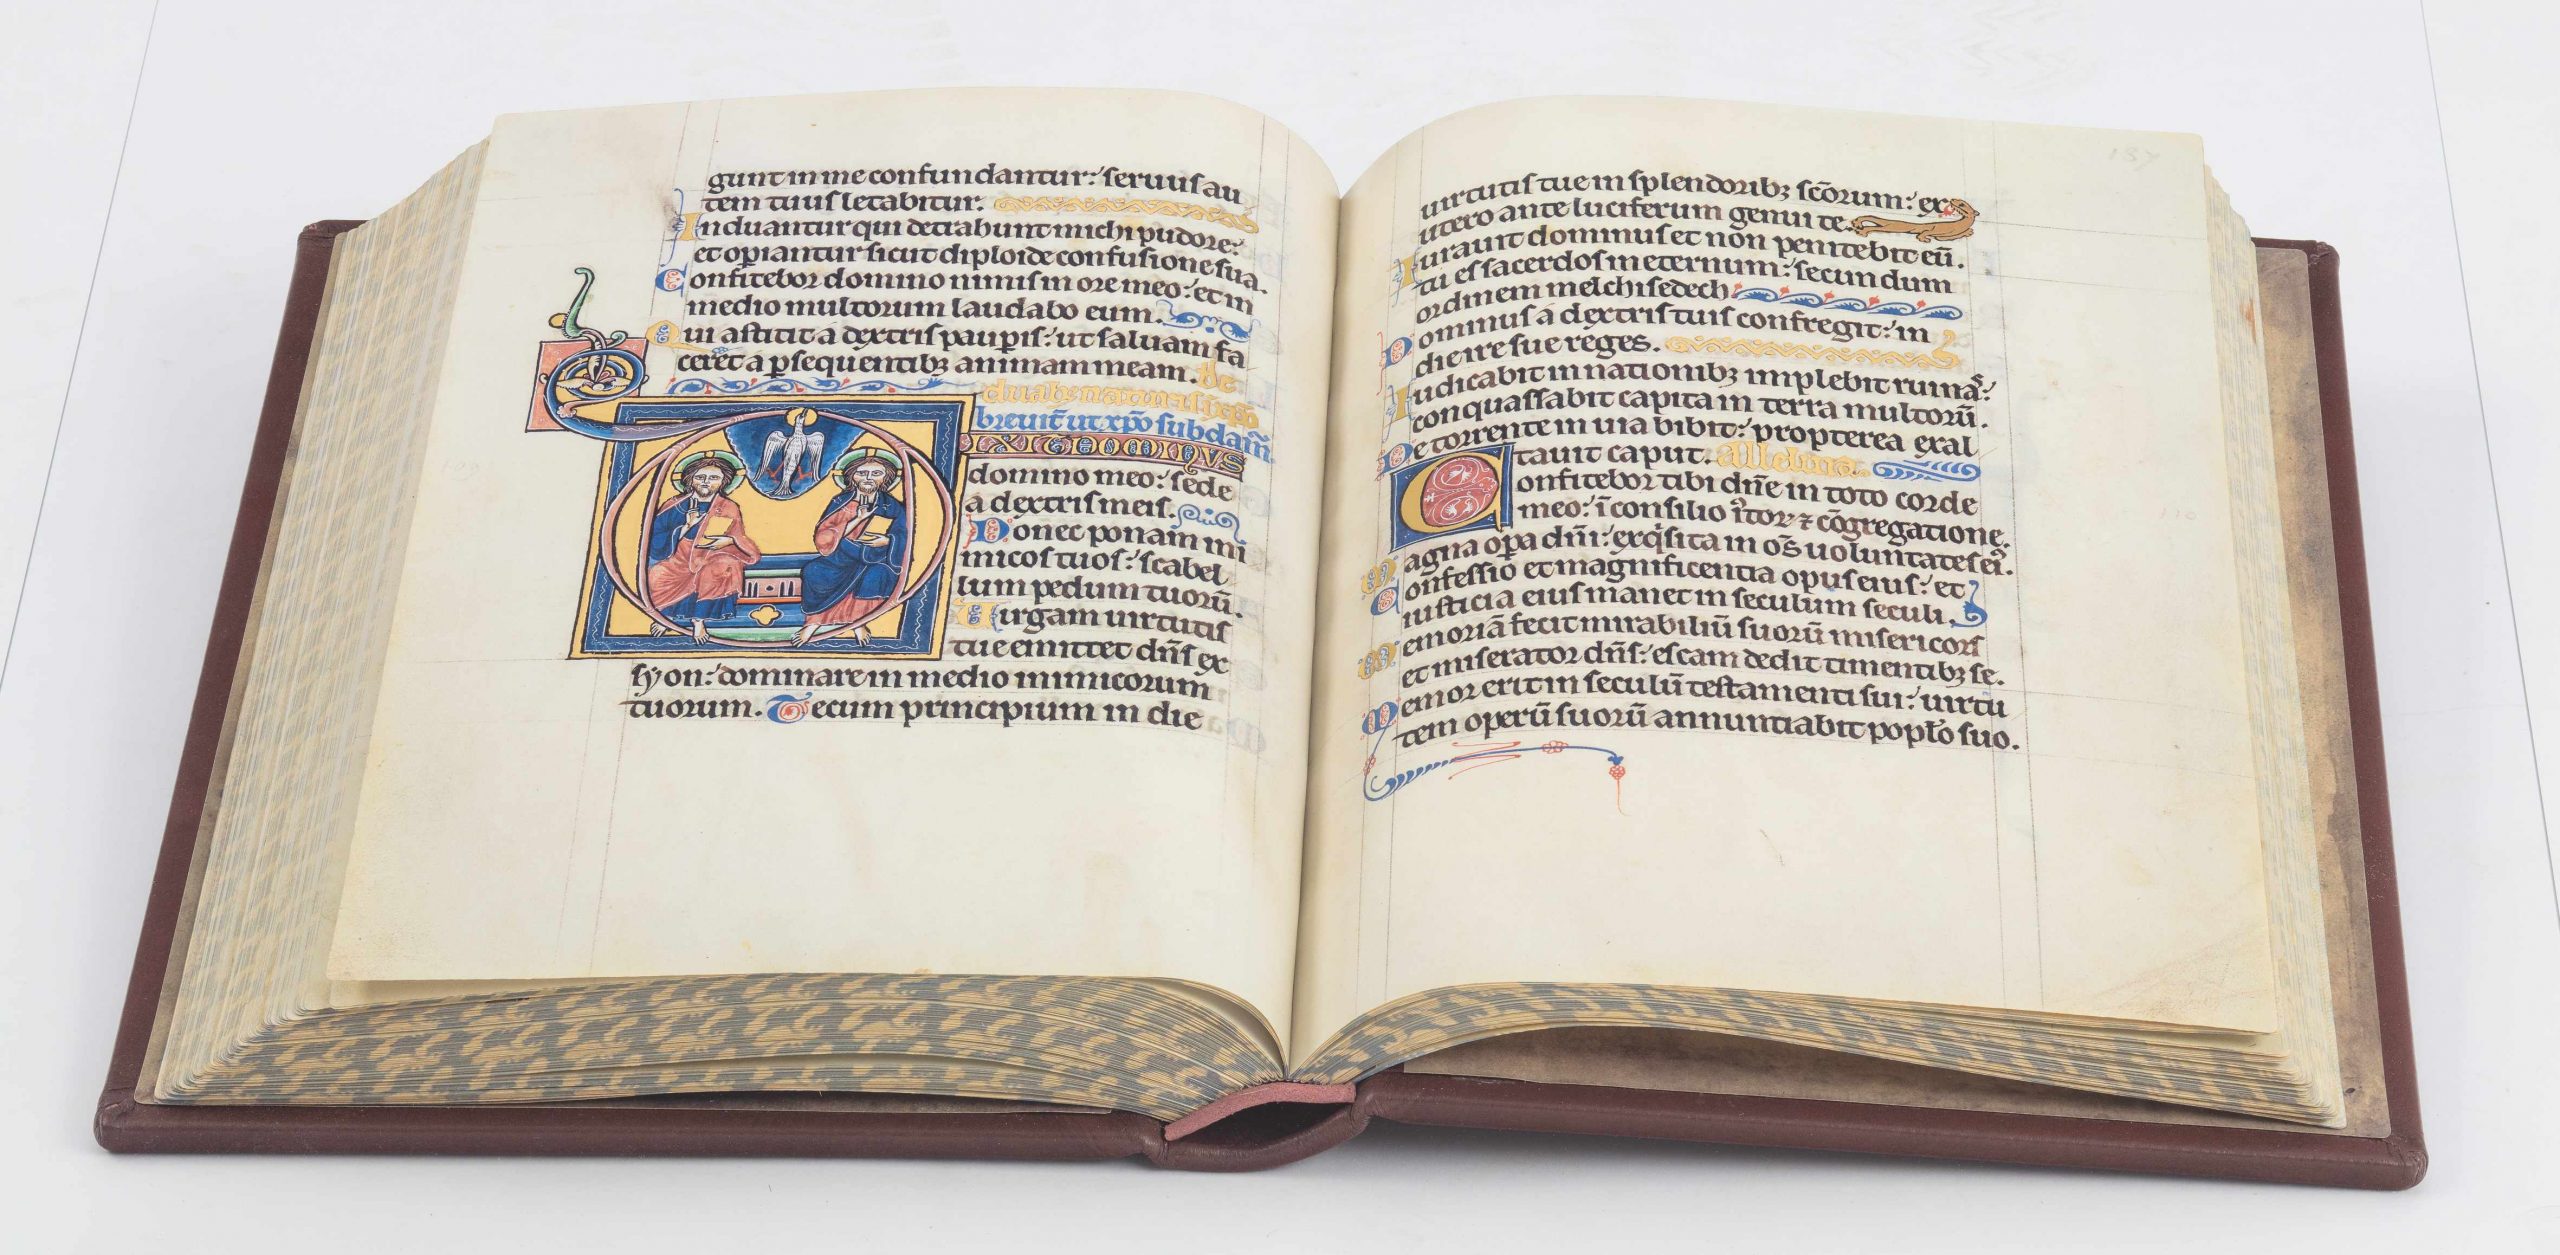 gunt in me confundantur: seruus au
tem tuus letabitur.
Induantur qui detrahunt michi pudore:
et operiantur sicut diploide confusione sua.
Confitebor domino nimis in ore meo: et in
medio multorum laudabo eum.
Qui astitit a dextris paupis: ut saluam fa
ceret a psequentibz animam meam. De
duabz naturis
breuit ut xpo subdam
DIXIT DOMINUS
domino meo: sede
a dextris meis.
Donec ponam ini
micos tuos: scabel
lum pedum tuorū.
Uirgam uirtutis
tue emittet dn̄s ex
syon: dominare in medio inimicorum
tuorum. Tecum principium in die
187
uirtutis tue in splendoribz sc̄orum: ex
utero ante luciferum genui te.
Iurauit dominus et non penitebit eū.
tu es sacerdos in eternum: secundum
ordinem melchisedech.
Dominus a dextris tuis confregit: in
die ire sue reges.
Iudicabit in nationibz implebit ruinas:
conquassabit capita in terra multorū.
De torrente in uia bibit: propterea exal
tauit caput. alleluia.
Confitebor tibi dn̄e in toto corde
meo: ī consilio iustor ⁊ cōgregatione.
Magna opa dn̄i: exqisita in oēs uoluntates ei.
Confessio et magnificentia opus eius: et
iusticia eius manet in seculum seculi.
Memoriā fecit mirabiliū suorū misericors
et miserator dn̄s: escam dedit timentibz se.
Memor erit in seculū testamenti sui: uirtu
tem operū suorū annuntiabit poplo suo.